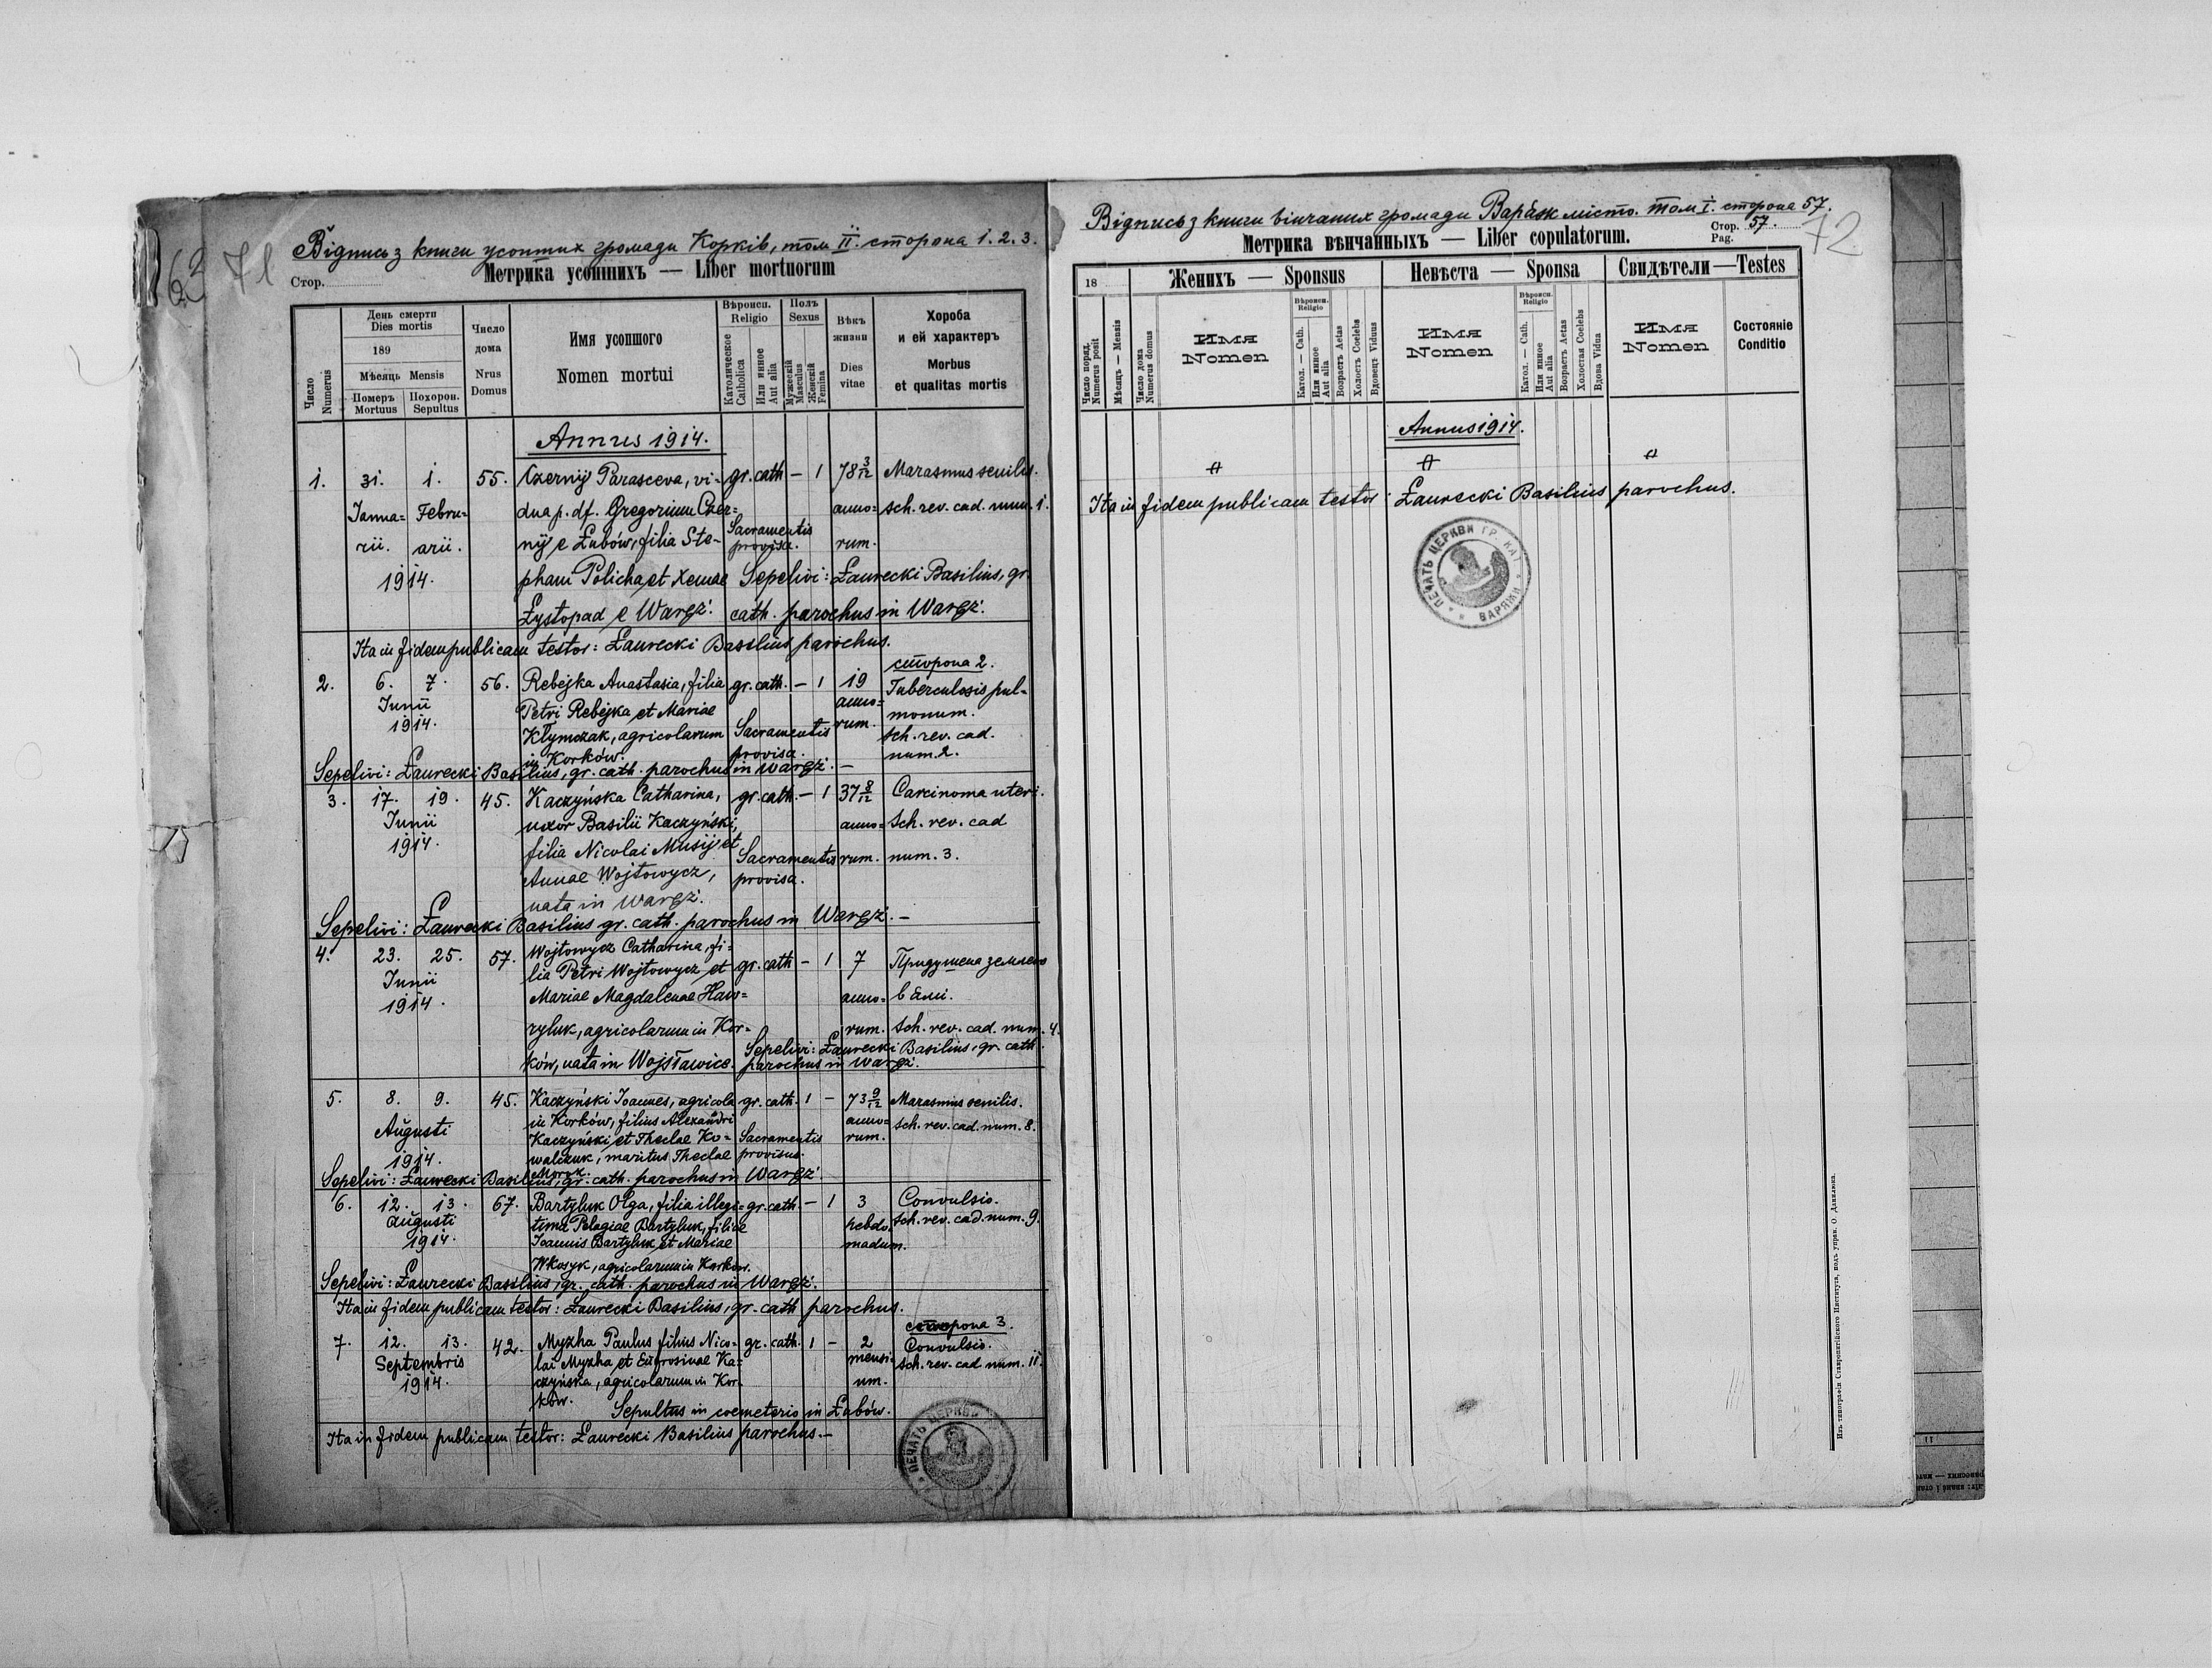 Відпись з книги усопших громади Корків, том ІІ. сторона 1. 2. 3.
Стор.
Метрика усопшихъ — Liber mortuorum
71
Число
Numerus
День смерти
Dies mortis
189
Мѣсяць Mensis
Померъ
Mortuus
Похорон.
Sepultus
Число
дома
Nrus
Domus
Имя усопшого
Nomen mortui
Вѣроисп.
Religio
Католическое
Catholica
Или инное
Aut alia
Полъ
Sexus
Мужескій
Masculus
Женскій
Femina
Вѣкъ
жизни
Dies
vitae
Хороба
и ей характеръ
Morbus
et qualitas mortis
Annus 1914.
1. 31. 1. 55. Czernij Parasceva, vi- gr. cath - 1 78 3/12 Marasmus senilis.
Janua= Febru= dua p. df. Gregorium Czer= anno= sch. rev. cad. num. 1.
rii. arii. nij e Łubów, filia Ste- Sacramentis provisa. rum.
1914. phani Policha, et Xeniae Sepelivi: Laurecki Basilius, gr.
Łystopad e Waręż. cath. parochus in Waręż.
Ita in fidem publicam testor: Laurecki Basilius parochus.
сторона 2.
2. 6. 7. 56. Rebejka Anastasia, filia gr. cath. - 1 19 Tuberculosis pul=
Junii Petri Rebejka et Mariae anno= monum.
1914. Kłymczak, agricolarum Sacramentis rum. sch. rev. cad.
in Korków. provisa. num. 2.
Sepelivi: Laurecki Basilius, gr. cath. parochus in Waręż. —
3. 17. 19. 45. Kaczyńska Catharina, gr. cath. - 1 37 8/12 Carcinoma uteri.
Junii uxor Basilii Kaczyński, anno= Sch. rev. cad
1914. filia Nicolai Musij et Sacramentis rum. num. 3.
Annae Wojtowycz, provisa.
nata in Waręż.
Sepelivi: Laurecki Basilius gr. cath. parochus in Waręż. —
4. 23. 25. 57. Wojtowycz Catharina, fi=
lia Petri Wojtowycz et gr. cath - 1 7 Придушена землею
Junii
1914. Mariae Magdalenae Haw= anno= в ямі.
ryluk, agricolarum in Kor= rum. Sch. rev. cad. num. 4.
ków, nata in Wojsławice. Sepelivi: Laurecki Basilius, gr. cath.
parochus in Waręż.
5. 8. 9. 45. Kaczyński Joannes, agricola gr. cath. 1 - 73 9/12 Marasmus senilis.
Augusti in Korków, filius Alexandri anno= sch. rev. cad. num. 8.
Kaczyński et Theclae Ko= Sacramentis rum.
1914. walczuk, maritus Theclae provisus.
Moroz.
Sepelivi: Laurecki Basilius, gr. cath. parochus in Waręż.
6. 12. 13. 67. Bartyluk Olga, filia illegi= gr. cath. - 1 3 Convulsio.
Augusti tima Pelagiae Bartyluk, filiae hebdo sch. rev. cad. num. 9.
1914. Joannis Bartyluk et Mariae madum.
agricolarum in Korków.
Sepelivi: Laurecki Basilius, gr. cath. parochus in Waręż.
Ita in fidem publicam testor: Laurecki Basilius, gr. cath parochus.
сторона 3.
7. 12. 13. 42. Myzha Paulus filius Nico= gr. cath. 1 - 2 Convulsio.
Septembris lai Myzha et Eufrosinae Ka= mensi= sch. rev. cad num. 11.
1914. czyńska, agricolarum in Kor= um.
ków. Sepultus in coemeterio in Łubów.
Ita in fidem publicam testor: Laurecki Basilius parochus. —
ПЕЧАТЬ ЦЕРКВИ
Відпись з книги вінчаних громади Варяж місто. том І. сторона 57.
Метрика вѣнчанныхъ — Liber copulatorum.
Стор. 57.
Pag.
72
18
Число поряд.
Numerus posit
Мѣсяць — Mensis
Число дома
Numerus domus
Женихъ — Sponsus
Имя
Nomen
Вѣроисп.
Religio
Катол. — Cath.
Или инное
Aut alia
Возрастъ Aetas
Холостъ Coelebs
Вдовецъ Vidus
Невѣста — Sponsa
Имя
Nomen
Вѣроисп.
Religio
Катол. — Cath.
Или инное
Aut alia
Возрастъ Aetas
Холостая Coelebs
Вдова Vidua
Свидѣтели — Testes
Имя
Nomen
Состояніе
Conditio
Annus 1914.
Ita in fidem publicam testor: Laurecki Basilius parochus.
ПЕЧАТЬ ЦЕРКВИ ГР. КАТ. ВАРЯЖИ
Изъ типографіи Ставропигійского Института, подъ управ. О. Данилюка.